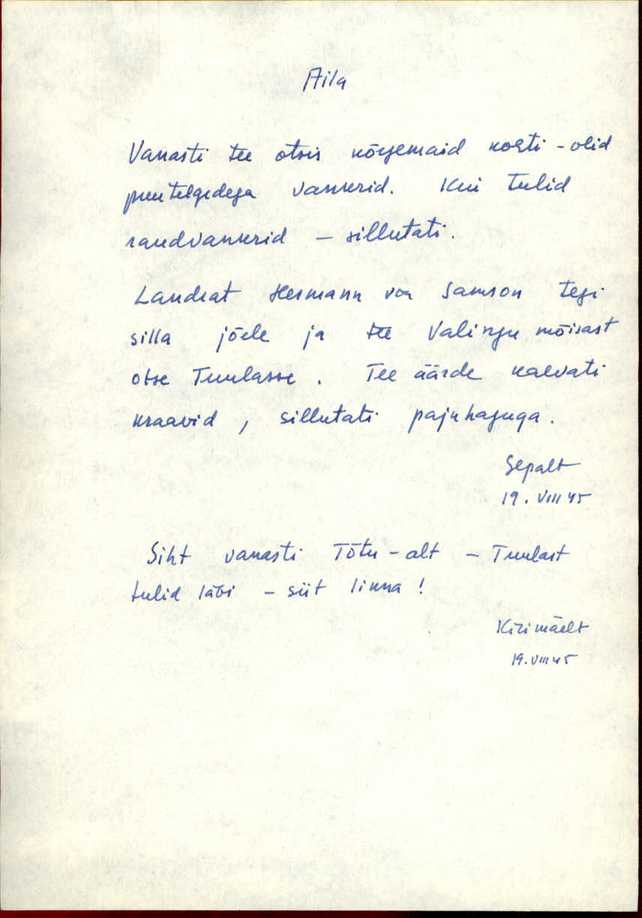 Aila
Vanasti tee otsis kõrgemaid kohti - olid
puutelgedega vankrid. Kui tulid
raudvankrid - sillutati.
Landrat Hermann von Samson tegi
silla jõele ja tee Valingu mõisast
otse Tuulasse. Tee äärde kaevati
kraavid, sillutati pajuhaguga.
Sepalt
19. VIII 45
Siht vanasti Tõtu-alt - Tuulast
tulid läbi - siit linna!
Kirimäelt
19. VIII 45